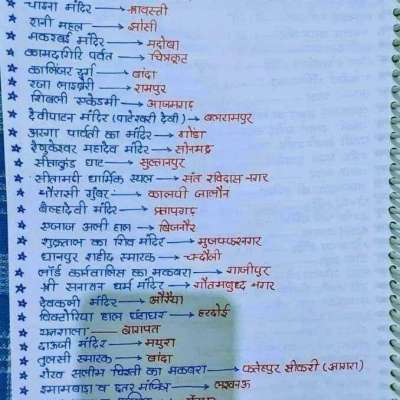 ★ चाइना मंदिर → श्रावस्ती
★ रानी महल → झांसी
★ मकरबई मंदिर → महोबा
★ कामदगिरि पर्वत → चित्रकूट
★ कालिंजर दुर्ग → बांदा
★ रजा लाइब्रेरी → रामपुर
★ शिबली एकेडमी → आजमगढ़
★ देवीपाटन मंदिर (पाटेश्वरी देवी) → बलरामपुर
★ अरगा पार्वती का मंदिर → गोंडा
★ रेणूकेश्वर महादेव मंदिर → सोनभद्र
★ सीताकुंड घाट → सुल्तानपुर
★ सीतामढ़ी धार्मिक स्थल → संत रविदास नगर
★ चौरासी गुंबद → कालपी जालौन
★ बेल्हादेवी मंदिर → प्रतापगढ़
★ अली हाल → बिजनौर
★ शुक्रताल का शिव मंदिर → मुजफ्फरनगर
★ धानपुर शहीद स्मारक → चन्दौली
★ लॉर्ड कार्नवालिस का मकबरा → गाजीपुर
★ श्री सनातन धर्म मंदिर → गौतमबुद्ध नगर
★ देवकली मंदिर → औरैया
★ विक्टोरिया हाल घंटाघर → हरदोई
★ यज्ञशाला — बागपत
★ दाऊजी मंदिर → मथुरा
★ तुलसी स्मारक → बांदा
★ शेख सलीम चिश्ती का मकबरा → फतेहपुर सीकरी (आगरा)
★ इमामबाड़ा व छतर मंजिल → लखनऊ